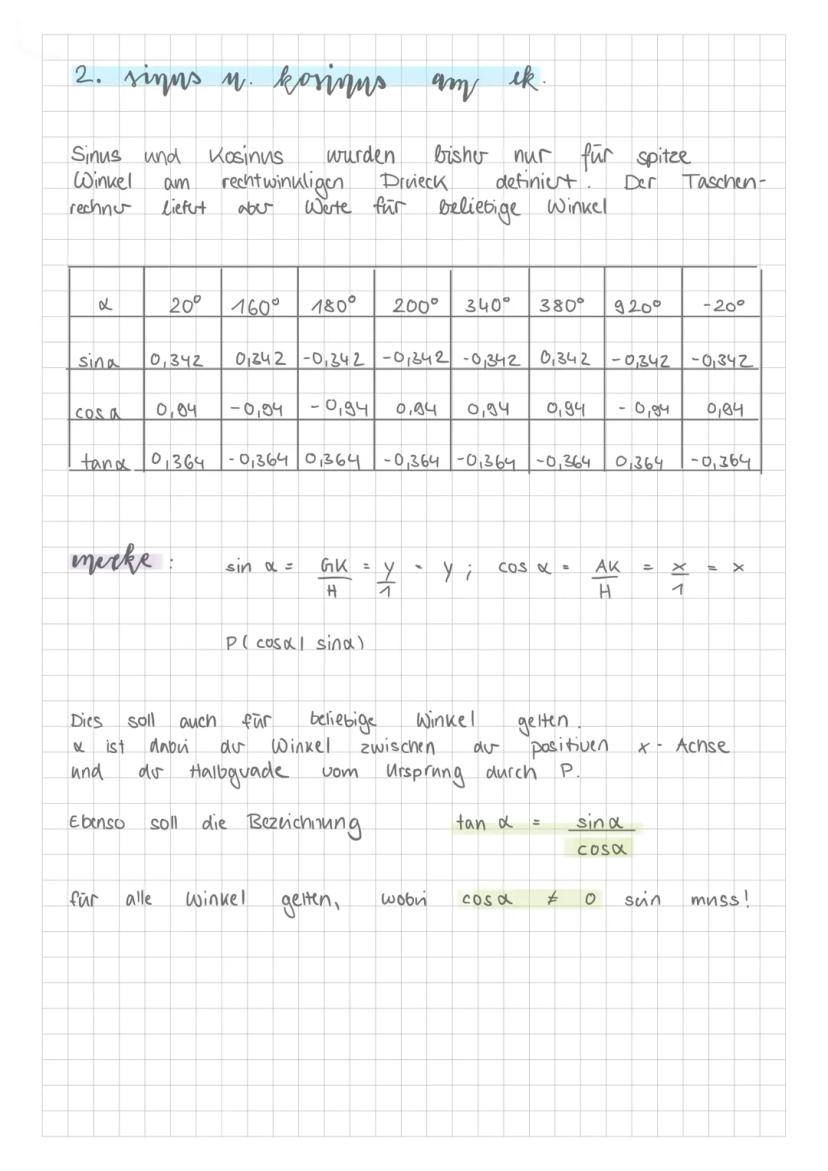 2. sinus u. kosinus am ek.
Sinus und Kosinus wurden bisher nur für spitze
Winkel am rechtwinkligen Dreieck definiert. Der Taschen-
rechner liefert aber Werte für beliebige Winkel
α 20° 160° 180° 200° 340° 380° 920° -20°
sinα 0,342 0,342 -0,342 -0,342 -0,342 0,342 -0,342 -0,342
cosα 0,94 -0,94 -0,94 0,94 0,94 0,94 -0,94 0,94
tanα 0,364 -0,364 0,364 -0,364 -0,364 -0,364 0,364 -0,364
merke: sin α = GK/H = y/1 - y; cos α = AK/H = x/1 = x
P(cosα| sinα)
Dies soll auch für beliebige Winkel gelten.
α ist dabei der Winkel zwischen der positiven x-Achse
und der Halbgerade vom Ursprung durch P.
Ebenso soll die Bezeichnung tan α = sinα/cosα
für alle Winkel gelten, wobei cosα ≠ 0 sein muss!